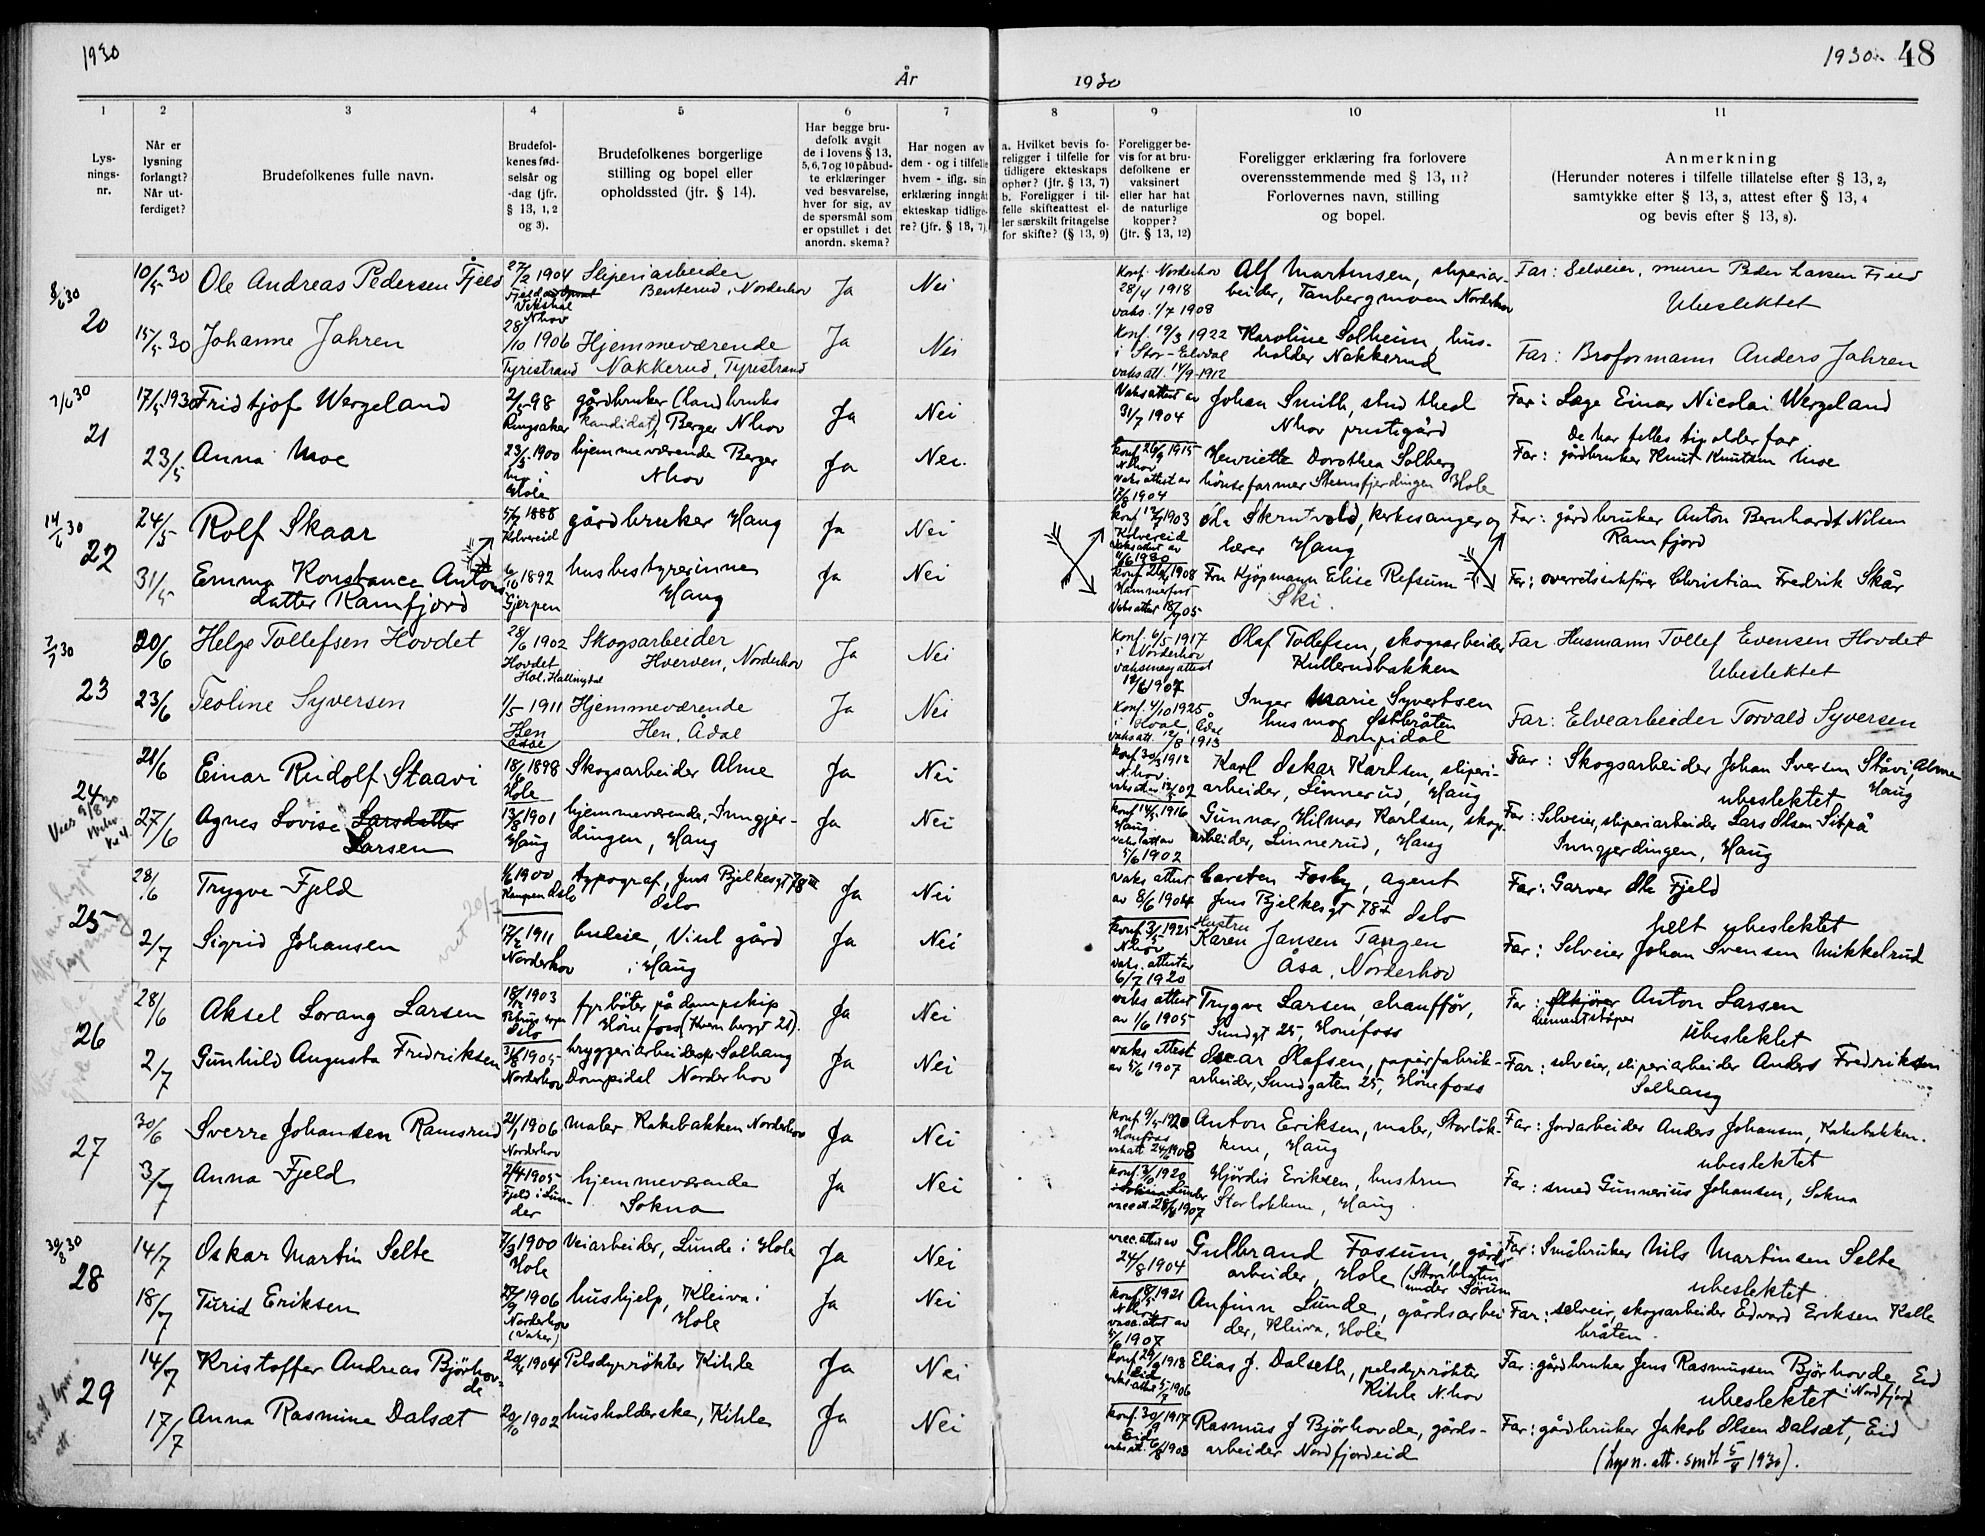 1930
1930. 48
År 1930
1 2 3 4 5 6 7 8 9 10 11
Lys-
nings-
nr.
Når er
lysning
forlangt?
Når ut-
ferdiget?
Brudefolkenes fulle navn.
Brudefol-
kenes fød-
selsår og
-dag (jfr.
§ 13, 1, 2
og 3).
Brudefolkenes borgerlige
stilling og bopel eller
opholdssted (jfr. § 14).
Har begge bru-
defolk avgit
de i lovens § 13,
5, 6, 7 og 10 påbud-
te erklæringer
ved besvarelse,
hver for sig, av
de spørsmål som
er opstillet i det
anordn. skema?
Har nogen av
dem - og i tilfelle
hvem - iflg. sin
erklæring inngåt
ekteskap tidlige-
re? (jfr. § 13, 7)
a. Hvilket bevis fo-
religger i tilfelle for
tidligere ekteskaps
ophør? (jfr. § 13, 7)
b. Foreligger i til-
felle skifteattest el-
ler særskilt fritagelse
for skifte? (§ 13, 9)
Foreligger be-
vis for at bru-
defolkene er
vaksinert
eller har hat
de naturlige
kopper?
(jfr. § 13, 12)
Foreligger erklæring fra forlovere
overensstemmende med § 13, 11?
Forlovernes navn, stilling
og bopel.
Anmerkning
(Herunder noteres i tilfelle tillatelse efter § 13, 2,
samtykke efter § 13, 3, attest efter § 13, 4
og bevis efter § 13, 8).
8/6 30
20
10/5 30 Ole Andreas Pedersen Fjeld
27/2 1904
Sliperiarbeider
Benterud, Norderhov
Nhov
Ja Nei
Konf. Norderhov
28/4 1918
vaks. 1/7 1908
Alf Martinsen, sliperiar-
beider, Tanbergmoen Norderhov
Far: Selveier, murer Peder Larsen Fjeld
Ubeslektet
15/5 30 Johanne Jahren
28/10 1906
Tyristrand
Hjemmeværende
Nakkerud, Tyristrand
Ja Nei
Konf. 19/3 1922
i Stor-Elvdal
vaks att. 14/9-1912
Karoline Solheim, hus-
holder Nakkerud
Far: Broformann Anders Jahren
7/6 30
21
17/5 1930 Fridtjof Wergeland
2/5-98
Ringsaker
gårdbruker (landbruks
kandidat), Berger Nhov
Ja Nei
Vaksattest av
31/7 1904
Johan Smith, stud theol
Nhov prestegård
Far: Læge Einar Nicolai Wergeland
De har felles tipolderfar
23/5 Anna Moe
23/3 1900
Hole
hjemmeværende Berger
Nhov
Ja Nei.
konf. 26/9 1915
Nhov
Vaks attest av
17/8 1904
Henriette Dorothea Solberg
hønsefarmer Steinsfjerdingen Hole
Far: gårdbruker Knut Knutsen Moe
14/6 30
22
24/5 Rolf Skaar
5/7 1888
Kolvereid
gårdbruker Haug
Ja Nei
konf. 12/7 1903
Kolvereid
vaks attest av
11/6 1930
Ola Skrutvold, kirkesanger og
lærer Haug
Far: gårdbruker Anton Bernhardt Nilsen
Ramfjord
31/5 Emma Konstance Antons
datter Ramfjord
6/10 1892
Gjerpen
husbestyrerinne
Haug
Ja Nei
Hammerfest
Vaks attest 18/9 05
Fru Kjøpmann Elise Refsum
Ski.
Far: overretssakfører Christian Fredrik Skår
7/7 30
23
20/6 Helge Tollefsen Hovdet
28/6 1902
Hovdet
Hol. Hallingdal
Skogsarbeider
Hverven, Norderhov
Ja Nei
Konf. 6/5 1917
i Norderhov
vaksinasj attest
12/6 1907
Olaf Tollefsen, skogsarbeider
Kullerudbakken
Far Husmann Tollef Evensen Hovdet
Ubeslektet
23/6 Teoline Syversen
1/5 1911
Hen
Ådal
Hjemmeværende
Hen, Ådal
Ja Nei
Konf. 4/10 1925
vaks att. 12/8 1913
Inger Marie Syvertsen
husmor Østbråten
Dompidal
Far: Elvearbeider Torvald Syversen
24
21/6 Einar Rudolf Staavi
18/6 1898
Hole
Skogsarbeider Alme
Ja Nei
konf. 30/3 1912
N.hov
Karl Oskar Karlsen, sliperi-
arbeider, Linnerud, Haug
Far: Skogsarbeider Johan Iversen Ståvi, Alme
Haug
ubeslektet
27/6 Agnes Lovise Larsdatter
Larsen
13/8 1901
Haug
hjemmeværende, Jungjer-
dingen, Haug
Ja Nei
konf. 14/5 1916
Haug
vaks att av
5/6 1902
Gunnar Hilmar Karlsen, skogs
arbeider, Linnerud, Haug
Far: Selveier, sliperiarbeider Lars Olsen Sitpå
Jungjerdingen, Haug
25
28/6 Trygve Fjeld
1/6 1900
Kampen Oslo
typograf, Jens Bjelkesgt 78 III
Oslo
Ja Nei
vaks attest
av 8/6 1904
Carsten Fosby, agent
Jens Bjelkesgt 78 I Oslo
Far: Garver Ole Fjeld
helt ubeslektet
2/7 Sigrid Johansen
17/2 1911
Norderhov
budeie, Viul gård
i Haug
Ja Nei
konf. 3/5 1925
Nhov
vaks. attest av
6/7 1920
Hustru
Karen Jansen Tangen
Åsa, Norderhov
Far: Selveier Johan Svensen Mikkelrud
26
28/6 Aksel Lorang Larsen
18/12 1903
Oslo
fyrbøter på dampskip
Hønefoss (Kvernbergt 21).
Ja Nei
vaks attest
av 1/6 1905
Trygve Larsen, chauffør,
Sundgt 25, Hønefoss
Far: Ølkjører Anton Larsen
Cementstøper
Ubeslektet
2/7 Gunhild Augusta Fredriksen
31/8 1905
Norderhov
bryggeriarbeiderske Solhaug
Dompidal Norderhov
Ja Nei
vaks attest
av 5/6 1907
Oscar Olafsen, papirfabrik-
arbeider, Sundgaten 25, Hønefoss
Far: selveier, sliperiarbeider Anders Fredriksen
Solhaug
27
30/6 Sverre Johansen Ramsrud
21/1 1906
Norderhov
maler Rakebakken Norderhov
Ja Nei
konf. 9/5 1920
Hønefoss
vaks att 24/6 1908
Anton Eriksen, maler, Storløk-
kene, Haug
Far: Jordarbeider Anders Johansen, Rakebakken.
ubeslektet
3/7 Anna Fjeld
2/4 1905
Fjeld i Lun-
der
hjemmeværende
Sokna
Ja Nei
konf. 3/10 1920
vacc att. 28/6 1907
Hjørdis Eriksen, hustru
Storløkken, Haug
Far: smed Gunnerius Johansen, Sokna
30/8 30
28
14/7 Oskar Martin Selte
7/3 1900
Hole
Veiarbeider, Lunde i Hole
Ja Nei
vacc. attest av
24/8 1904
Gulbrand Fossum, gårds
arbeider, Hole (Storeblysten
under Sørum
Far: Småbruker Nils Martinsen Selte
ubeslektet
18/7 Turid Eriksen
27/9 1906
Norderhov
(Vaker)
hushjelp, Kleiva i
Hole
Ja Nei
konf. 18/5 1921
Nhov
vacc. attest av
5/6 1907
Anfinn Lunde, gårdsarbei
der, Kleiva, Hole
Far: selveier, skogsarbeider Edvard Eriksen, Kalle
bråten.
29
14/7 Kristoffer Andreas Bjørhov-
de
20/4 1904
Pelsdyrrøkter Kihle
Ja Nei
konf 29/9 1918
Eid
vaks. attest 5/7 1906
Elias J. Dalseth, pelsdyrrøkter
Kihle N.hov
Far: gårdbruker Jens Rasmussen Bjørhovde, Eid
i Nordfjord
ubeslektet
17/7 Anna Rasmine Dalsæt
20/10 1902
husholderske, Kihle
Ja Nei
konf. 30/9 1917
Eid
vaks att. 6/8 1903
Rasmus J Bjørhovde, gårds-
arbeider Nordfjordeid
Far: gårdbruker Jakob Olsen Dalsæt, Eid
(Lysn. att. smdt 5/8 1930).